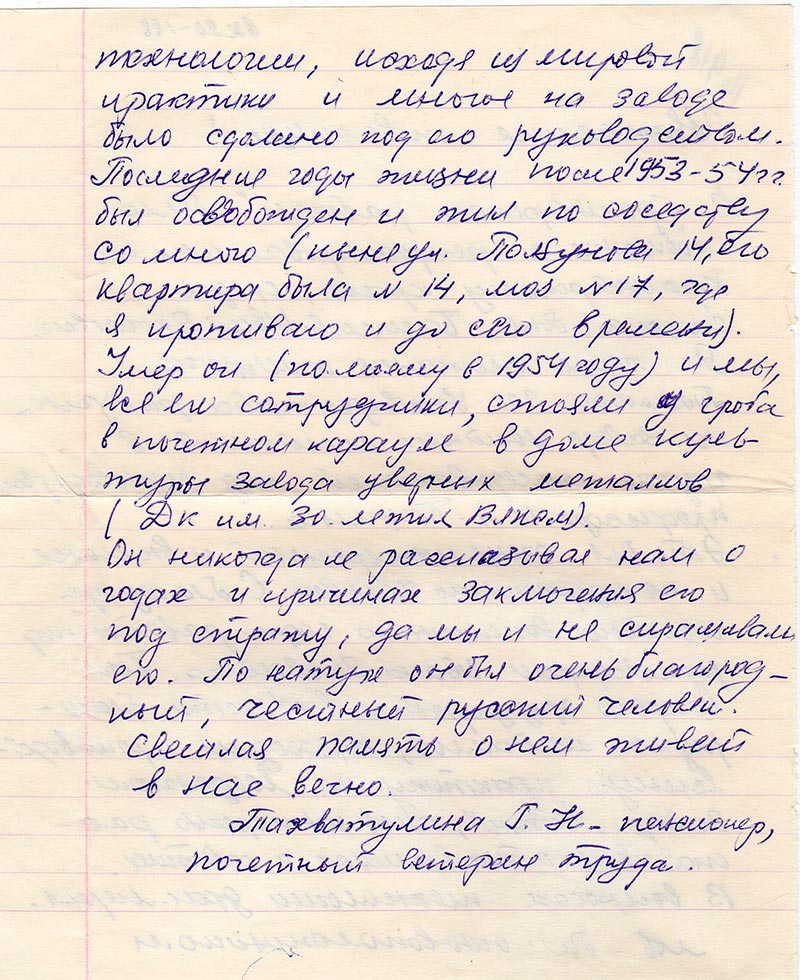 технологии, исходя из мировой
практики и многое на заводе
было сделано под его руководством.
Последние годы жизни после 1953-54 гг.
был освобожден и жил по соседству
со мною (ныне ул. Ползунова 14, его
квартира была N 14, моя N 17, где
я проживаю и до сего времени).
Умер он (по моему в 1954 году) и мы,
все его сотрудники, стояли у гроба
в почетном карауле в доме куль-
туры завода цветных металлов
(Дк им. 30 летия Влксм).
Он никогда не рассказывал нам о
годах и причинах заключения его
под стражу, да мы и не спрашивали
его. По натуре он был очень благород-
ный, честный русский человек.
Светлая память о нем живет
в нас вечно.
Тахватулина Г. Н - пенсионер,
почетный ветеран труда.